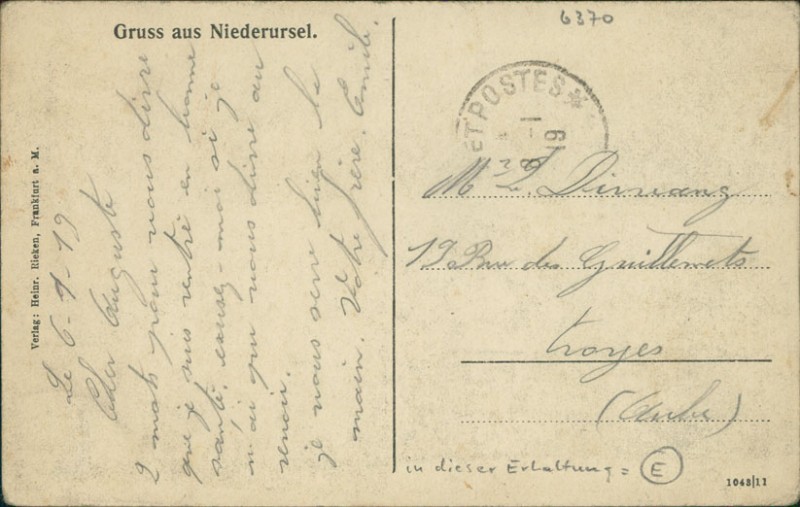 6370
Gruss aus Niederursel.
Verlag: Heinr. Rieken, Frankfurt a. M.
Le 6-1-19
Cher Auguste
2 mots pour vous dire
que je suis rentré en bonne
santé, excusez-moi si je
n'ai pu vous dire au
revoir.
je vous serre bien la
main. Votre frère. Emile.
ET POSTES *
8 -1
19
Dinvang
19 Rue des Guillemets
Troyes
(Aube)
in dieser Erhaltung = E
1043|11